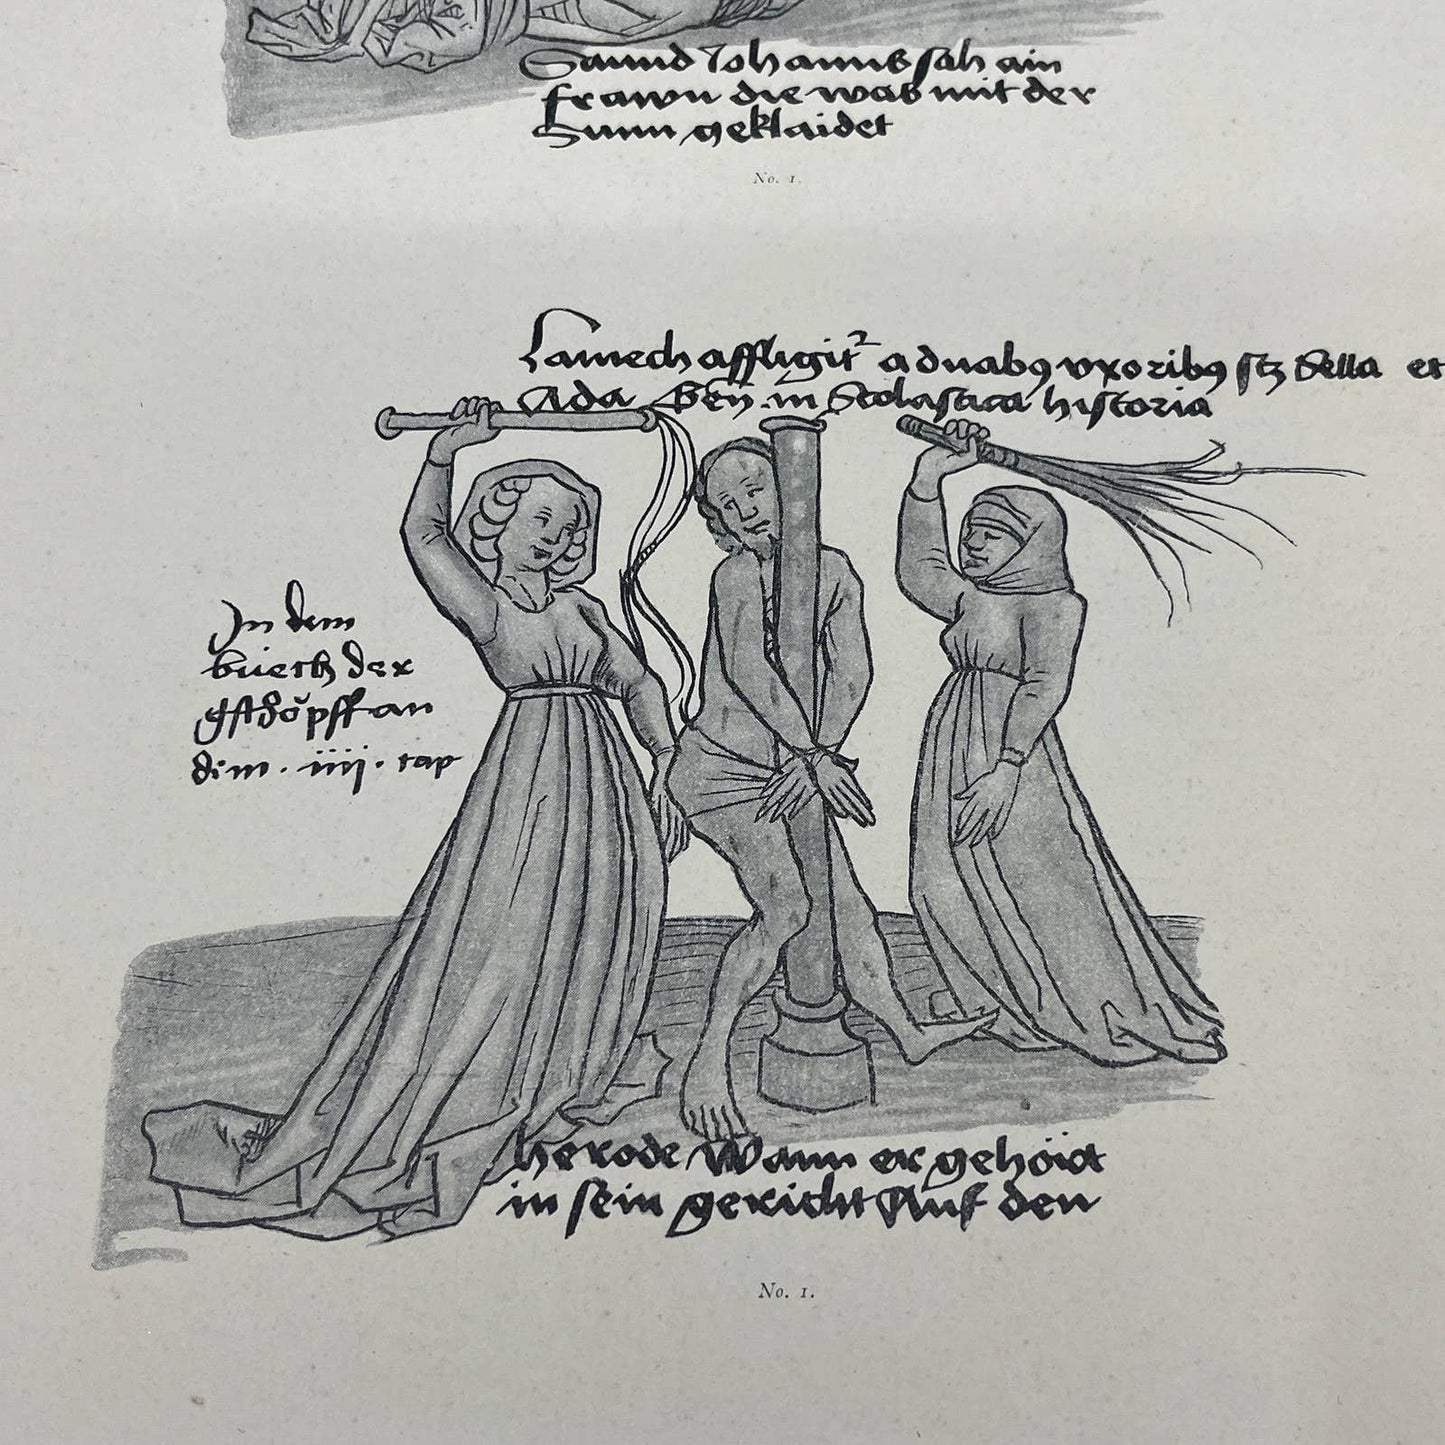 Sannd Johanns sah ain
frawn die was mit der
Sunn geklaidet
No. 1.
Lamech affligit᷑ a duabꝯ vxoribꝯ stz Sella et
Ada Geñ in Scolastica historia
In dem
buech der
gschöpff an
dem . iiij . cap
herode Wann er gehört
in sein gericht Auf den
No. 1.